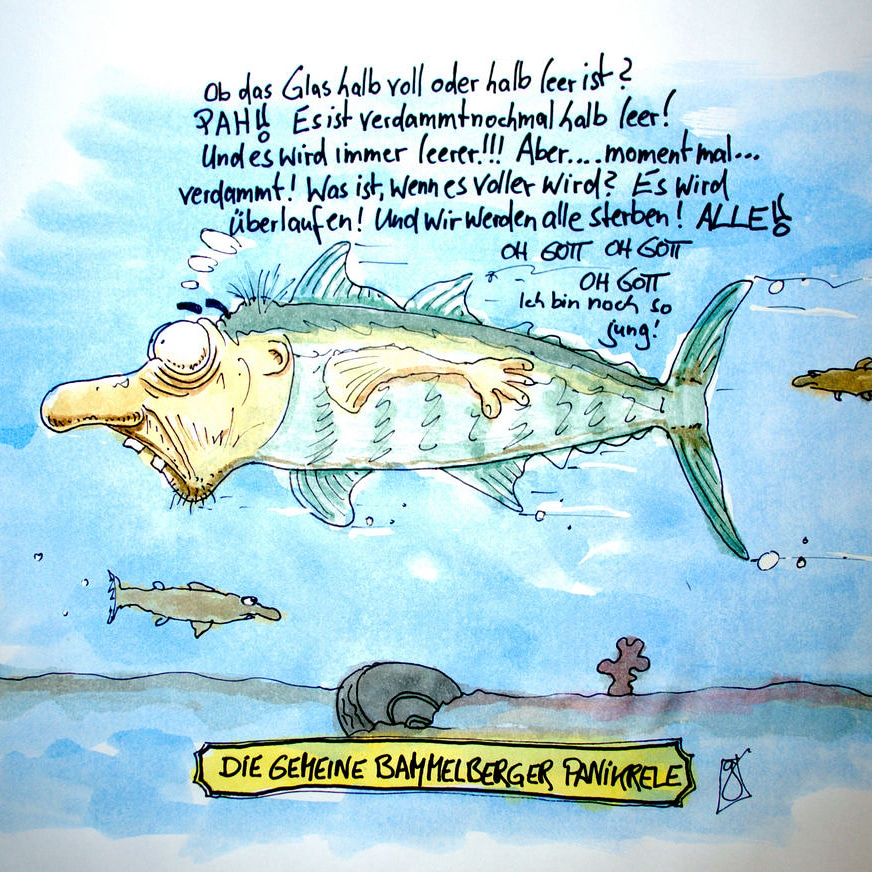 Ob das Glas halb voll oder halb leer ist?
PAH!! Es ist verdammtnochmal halb leer!
Und es wird immer leerer!!! Aber.... moment mal...
verdammt! Was ist, wenn es voller wird? Es wird
überlaufen! Und wir werden alle sterben! ALLE!!
OH GOTT OH GOTT
OH GOTT
Ich bin noch so
jung!
DIE GEMEINE BAMMELBERGER PANIKRELE